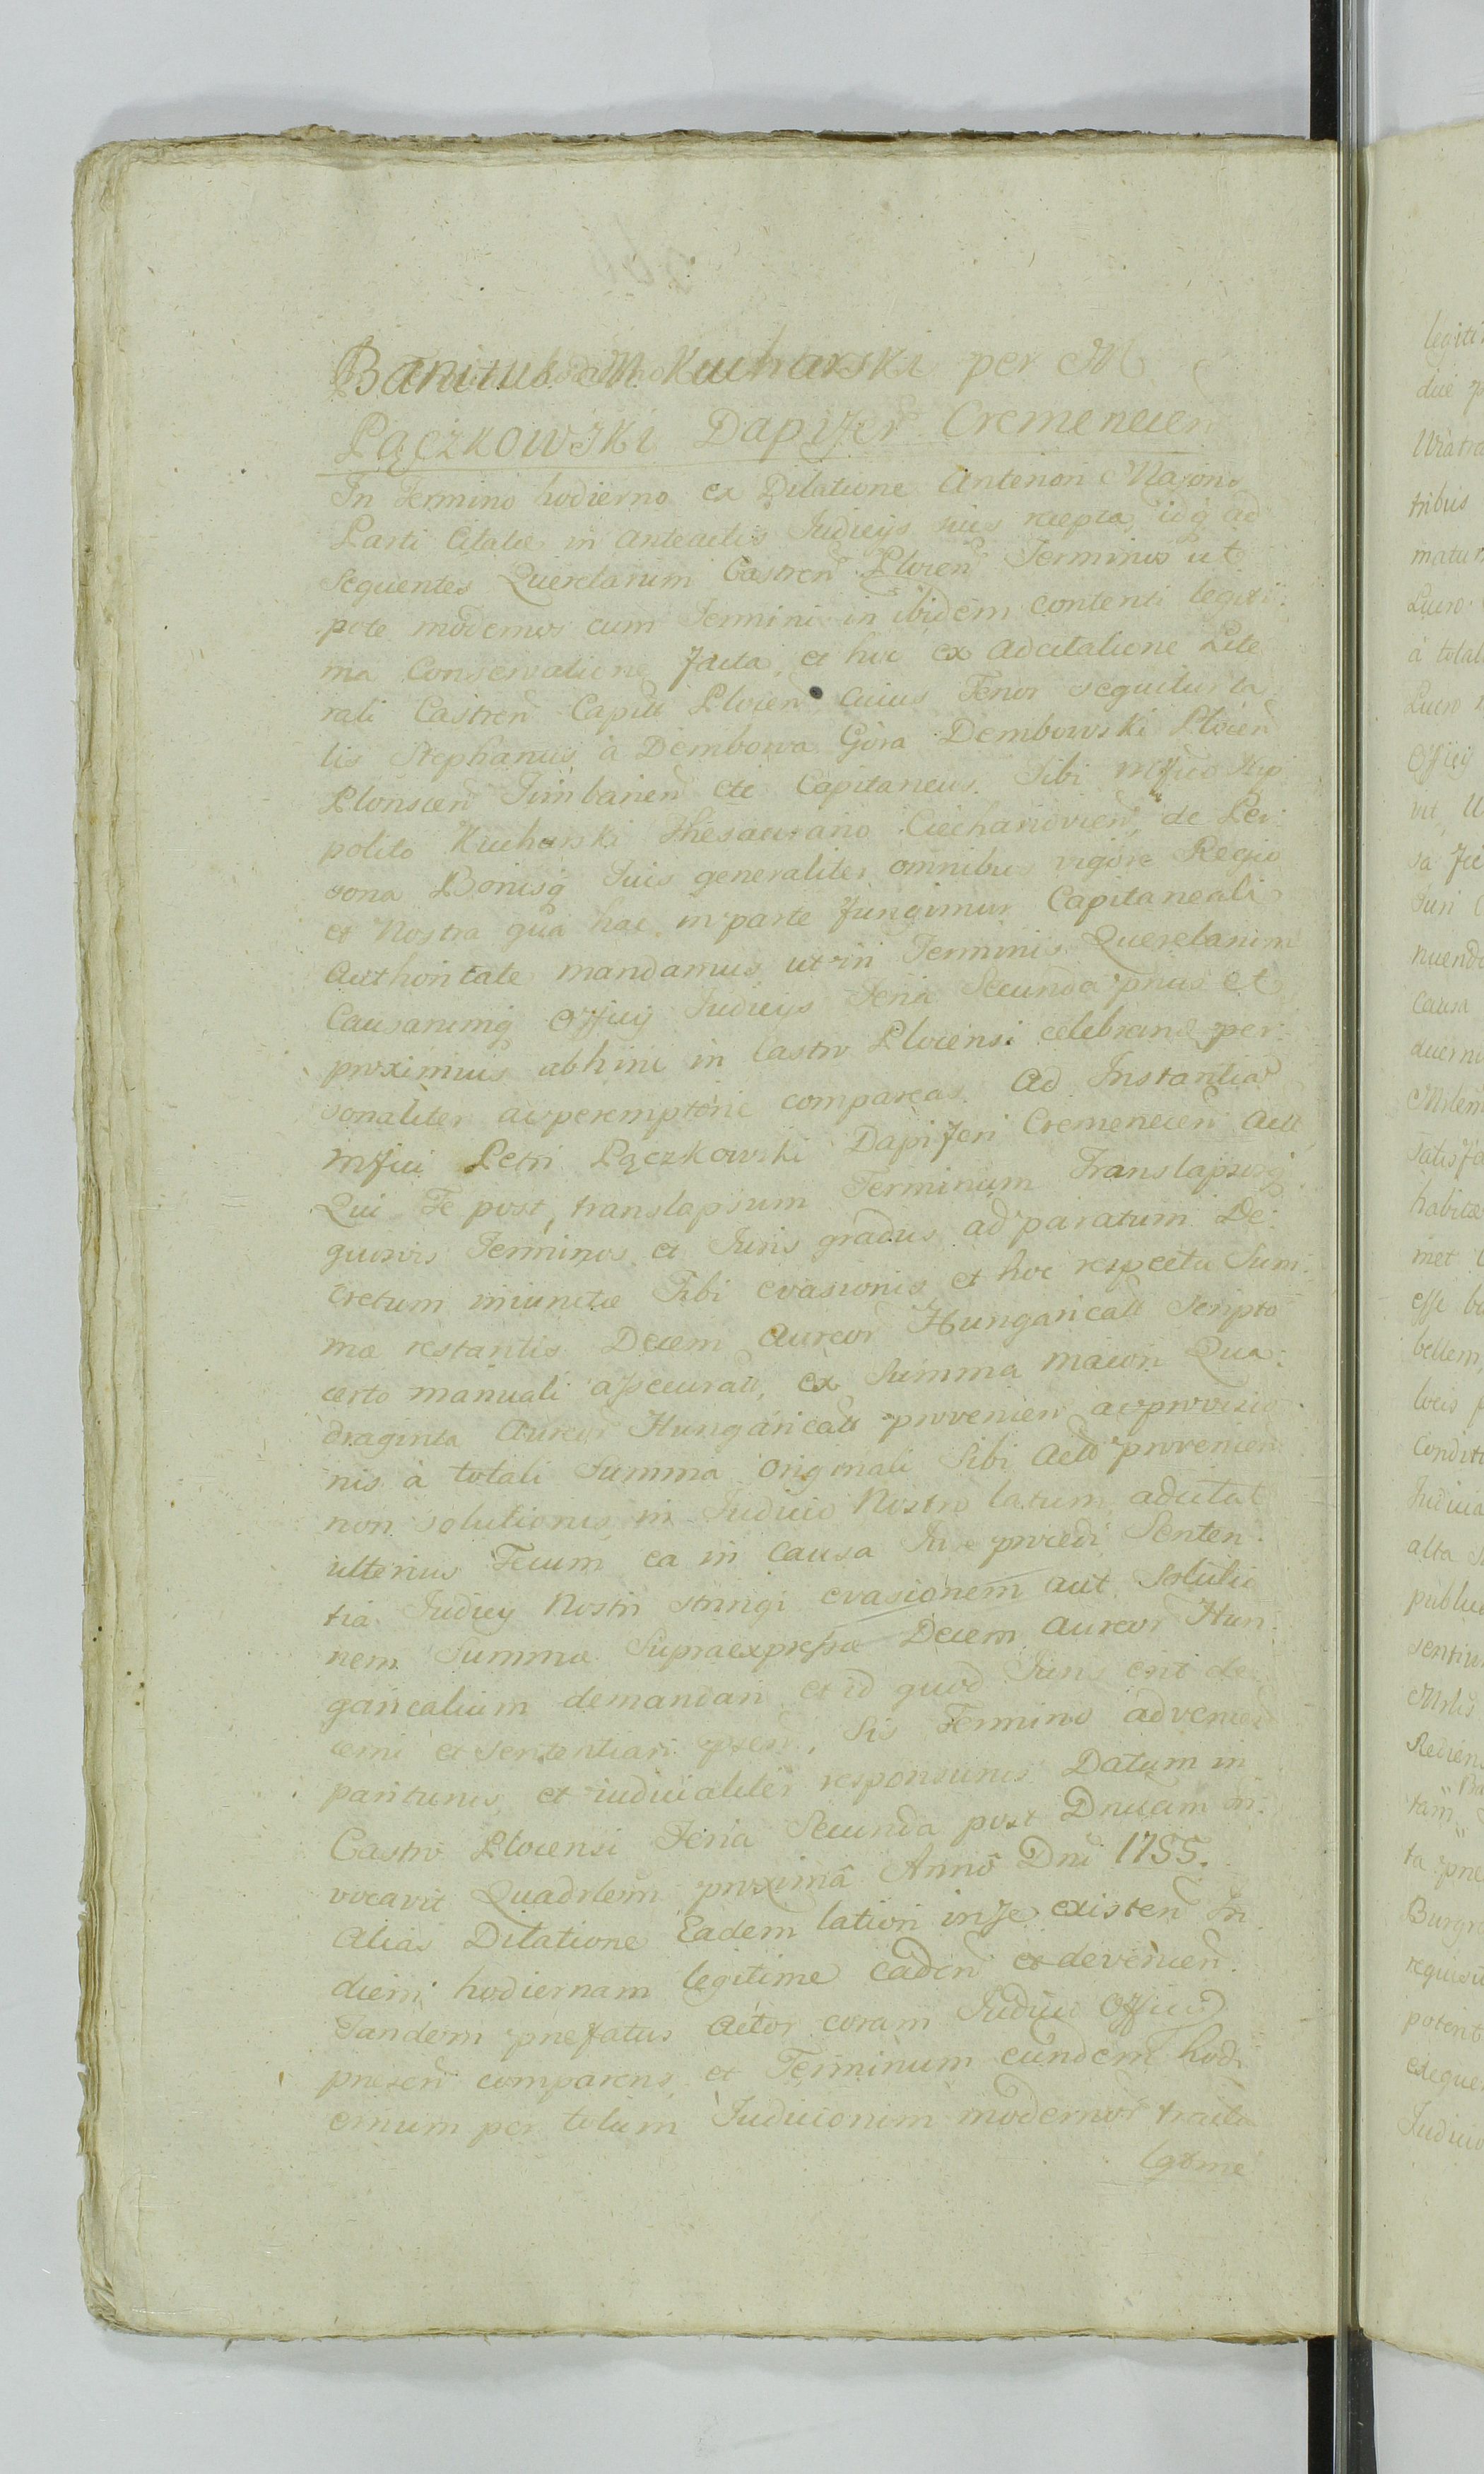 Banitus M Kucharski per M
Pączkowski Dapifer Cremenecen
In Termino hodierno ex Dilatione Anteriori Majori
Parti Citatæ in anteactis Judicijs suis recepta idq ad
sequentes Querelarum Castren Plocen Terminos ut
pote modernos cum Termini in ibidem contenti legiti:
ma Conservatione facta, et hoc ex Adcitatione Lite
rali Castren Capitli Plocen cuius Tenor sequitur ta
lis Stephanus à Dembowa Góra Dembowski Plocen
Plonscen Timbarien etc Capitaneus. Tibi Mfico Hyp
polito Kucharski Thesaurario Ciechanovien, de Per:
sona Bonisq Tuis generaliter omnibus vigore Regio
et Nostra qua hac in parte fungimur Capitaneali
Authoritate mandamus ut in Terminis Querelarum
Causarumq Officij Judicijs Feria Secunda prius et
proximius abhinc in Castro Plocensi celebrand per:
sonaliter ac peremptorie compareas. Ad Instantiam
Mfici Petri Pączkowski Dapiferi Cremenecen Act
Qui Te post translapsum Terminum Translapsosq
quosvis Terminos et Juris gradus ad paratum De:
cretum iniunctæ Tibi evasionis et hoc respectu Sum:
mæ restantis Decem Aureor Hungaricall Scripto
certo manuali assecurat, ex Summa maiori Qua:
draginta Aureor Hungaricall provenien ac provisio
nis à totali Summa originali Sibi Acto provenien
non solutionis in Judicio Nostro latum adcitat
ulterius Tecum ea in Causa Jure procedi Senten:
tia Judicij Nostri stringi evasionem aut Solutio
nem Summæ Supraexpressæ Decem Aureor Hun:
garicalium demandari et id quod Juris erit de
cerni et sententiari pten, Sis Termino advenien
pariturus, et iudicialiter responsurus Datum in
Castro Plocensi Feria Secunda post Dnicam In:
vocavit Quadrlem proximâ Annô Dni 1755.
Alias Dilatione Eadem latiori in se existen In
diem hodiernam legitime caden et devenien.
Tandem præfatus Actor coram Judicio Officioq
præsen comparens, et Terminum eundem hodi
ernum per totum Judiciorum modernor tractu
lgtme